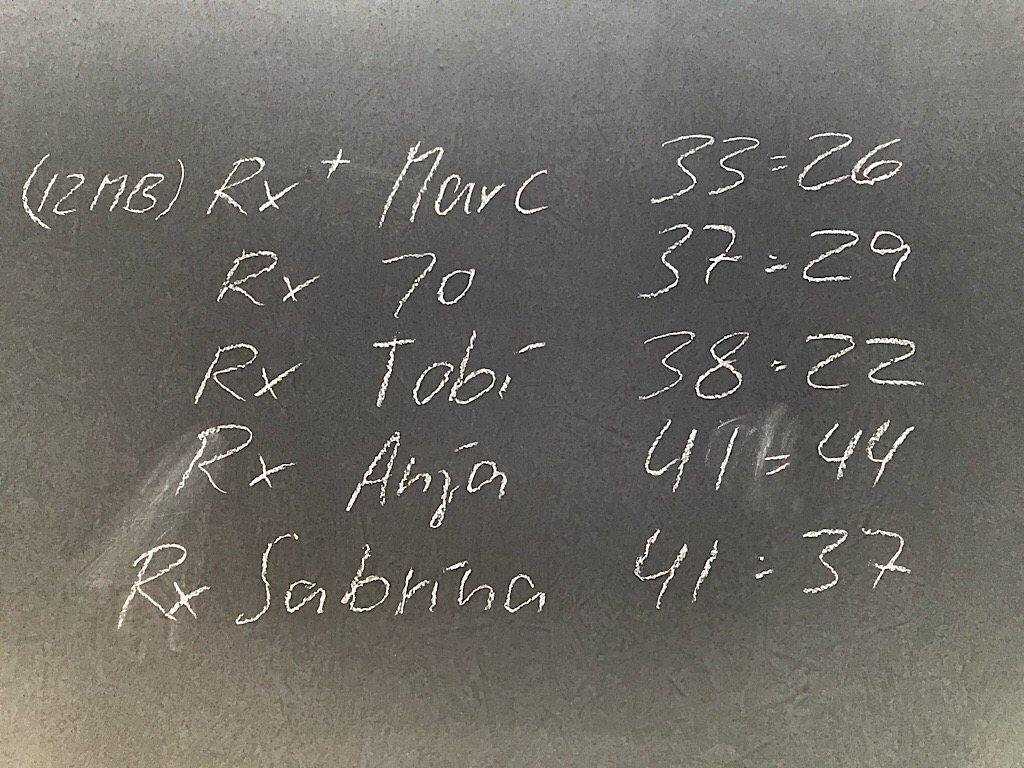 (12MB) Rx+ Marc 33:26
Rx 70 37:29
Rx Tobi 38:22
Rx Anja 41:44
Rx Sabrina 41:37